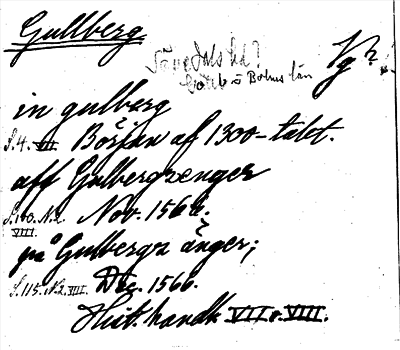 Gullberg
Sävedals hd? Vg?
Göteb o Bohus län
in gulberg
S. 4. VII Början af 1300-talet.
aff Gulbergzenger
S. 100. N. 2. VIII. Nov. 1566.
på Gulbergz änger;
S. 115. N. 2. VIII. Dec. 1566.
Hist. handl. VII o. VIII.